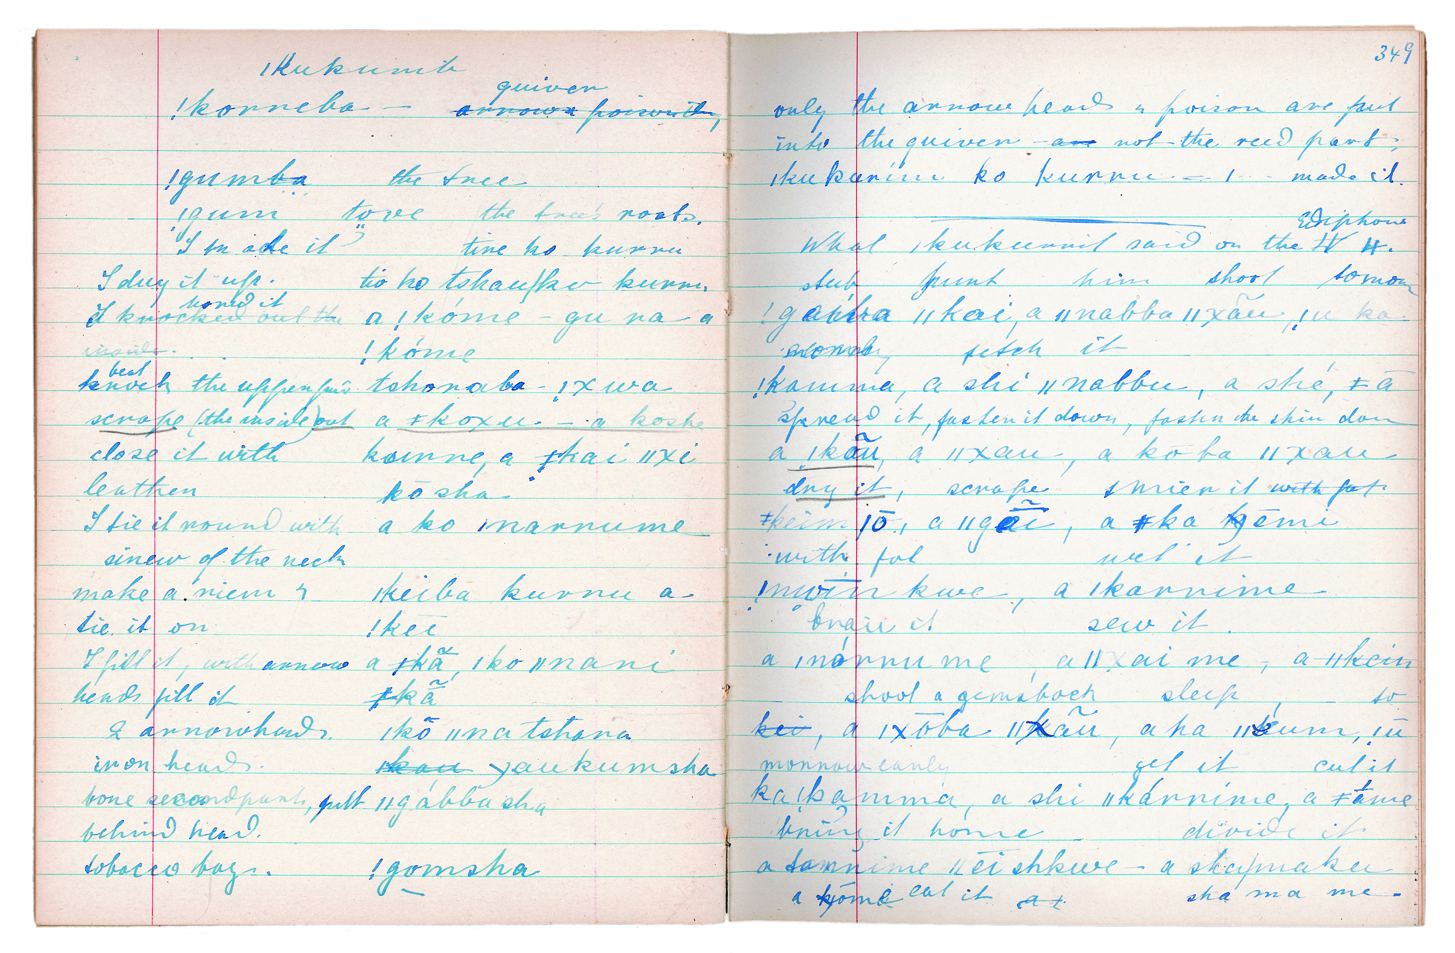 ǀKukurrib
quiver
!korreba — arrow & poison it,
!gumba the tree
!gum tove the tree's roots.
I made it tire ko kurru
I dug it up. tio ko tshau/kv kurru
bored it
I knocked out the a !kóme - gu ra - a
inside. !kóme
beat
knock the upper part tshoraba - !xwa
scrape (the inside) out a ǂkoxu — a koshe
close it with kounne, a ǂkai ǁxi
leather kōsha
I tie it round with a ko ǀnarrume
sinew of the neck
make a riem & ǀkeiba kurru a
tie it on ǃkeī
I fill it, with arrow a ǂkã, ǀko ǁnani
heads fill it ǂkã
& arrowheads. ǀkō ǁna tshana
iron heads. ǀkau ǀaukumsha
bone second part, quill ǁgábbasha
behind head.
tobacco bags. !gomsha
349
only the arrow heads & poison are put
into the quiver - are not the reed part;
ǀkukúrim ko kurru — made it.
Ediphone
What ǀkukurrib said on the
stub hunt him shoot tomor
!gabba ǁkai, a ǁnabba ǁxãu, !u ka-
fetch it
!kamma, a shi ǁnabbu, a shé, ǂā
spread it, fasten it down, fasten the skin down
a ǀkãu, a ǁxau, a kōba ǁxau
dry it, scrape smier it with fat
ǂkeim ǀō, a ǁgãi, a ǂka kyēmi
with fat wet it
!nwīn kwe, a ǀkarrime
braii it sew it.
a ǀnárrume, a ǁxai me, a ǁkein
shoot a gemsboch sleep, to
kei, a ǀxōba ǁxãu, a ha ǁkum, ǀū
morrow early get it cut it
ka!kamma, a shi ǁkárrime, a ǂáme
bring it home divide it
a tanníme ǁēishkwe - a sha/maku
a kyome eat it sha ma me -